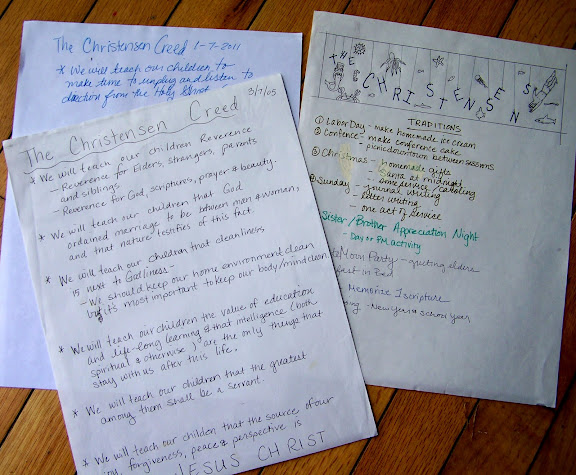 The Christensen Creed 1-7-2011
* We will teach our children to
make time to unplug and listen to
direction from the Holy
The Christensen Creed 3/7/05
* We will teach our children Reverence
- Reverence for Elders, strangers, parents
and siblings.
- Reverence for God, scriptures, prayer & beauty.
* We will teach our children that God
ordained marriage to be between man & woman,
and that nature testifies of this fact.
* We will teach our children that cleanliness
is next to Godliness-
- We should keep our home environment clean
but it's most important to keep our body/mind clean.
* We will teach our children the value of education
and life-long learning & that intelligence (both
spiritual & otherwise) are the only things that
stay with us after this life.
* We will teach our children that the greatest
among them shall be a servant.
* We will teach our children that the source of our
joy, forgiveness, peace & perspective is
JESUS CHRIST
THE
CHRISTENSENS
TRADITIONS
① Labor Day - make homemade ice cream
② Confence - make conference cake
- picnic downtown between sessions
③ Christmas - homemade gifts
- Santa at midnight
- some service / caroling
④ Sunday - journal writing
- letter writing
- one act of service
Sister/Brother Appreciation Night
- Day or PM activity
Mom Party -
in Bed
Memorize 1 scripture
- New Years & school year